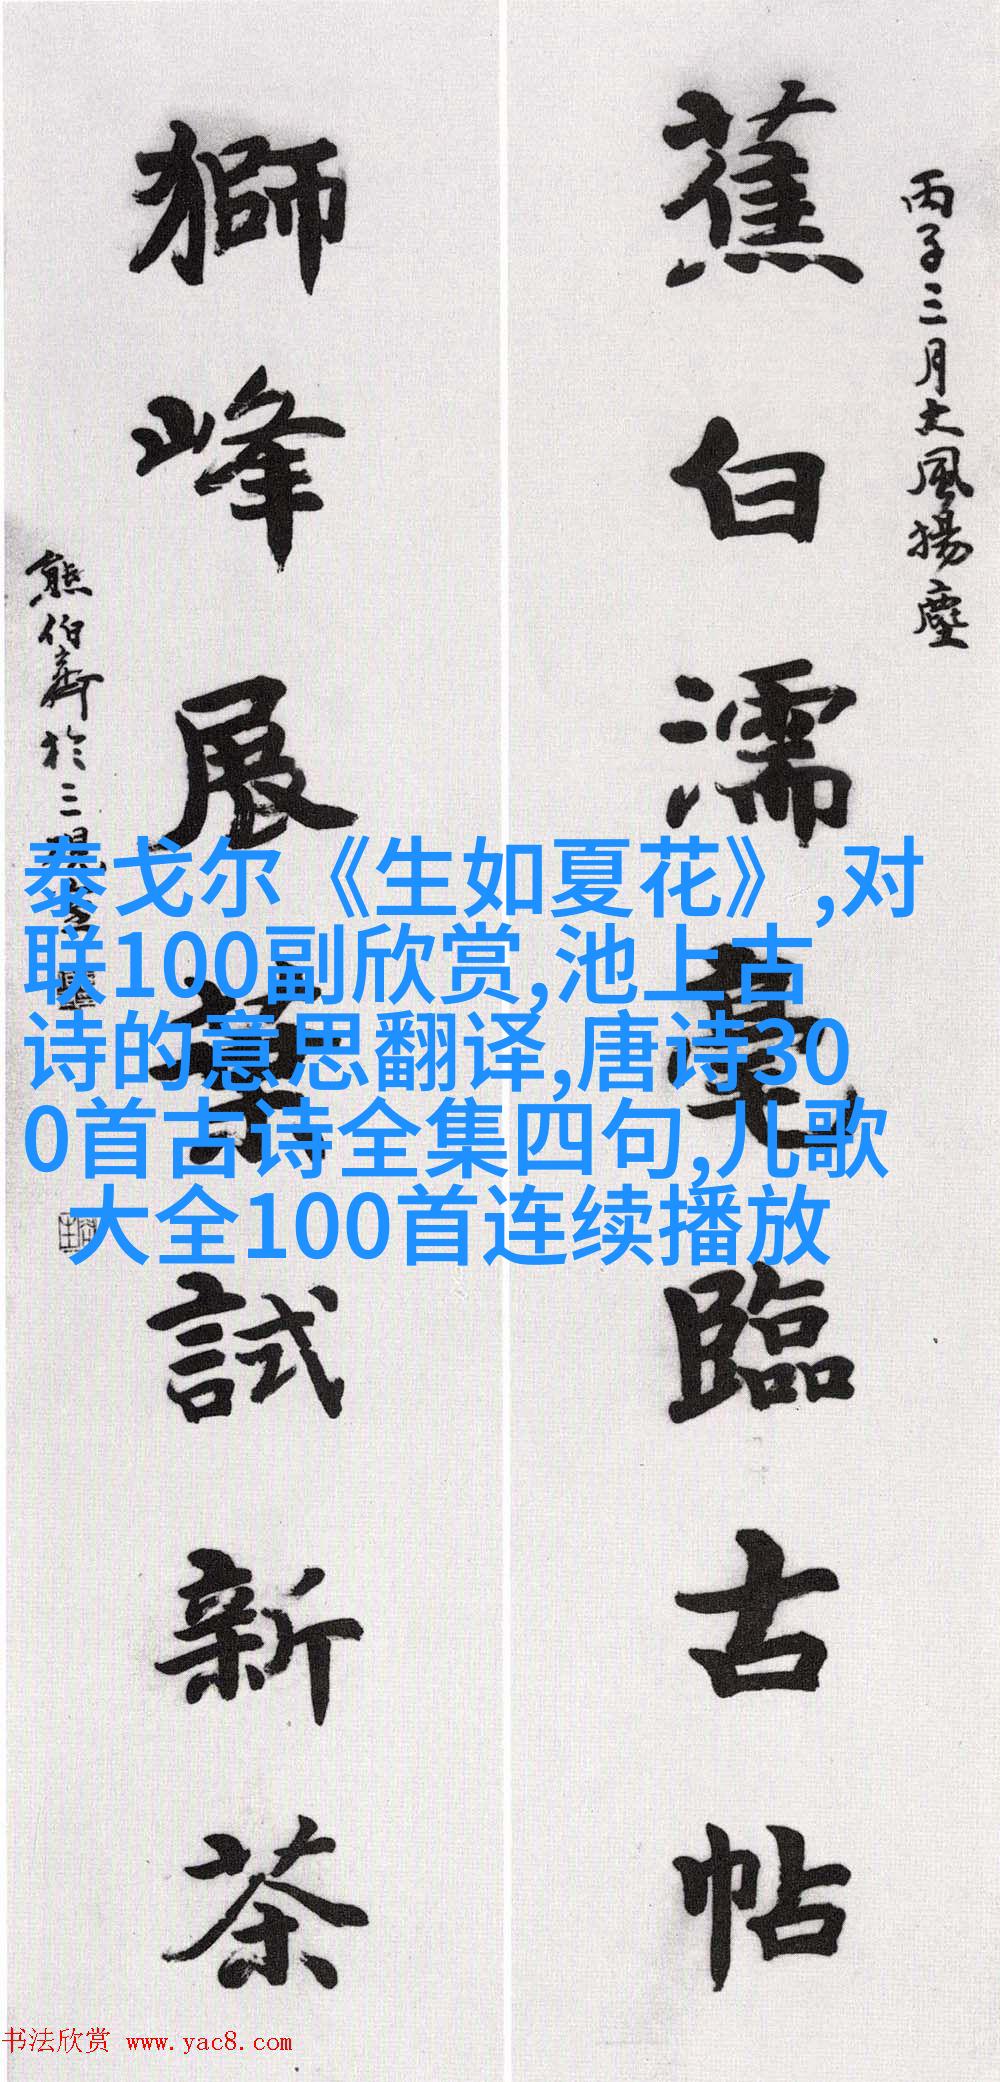 丙子三月大風揚塵
蕉白濡毫臨古帖
獅峰展葉試新茶
熊伯齊於三硯
泰戈尔《生如夏花》,对
联100副欣赏,池上古
诗的意思翻译,唐诗30
0首古诗全集四句,儿歌
大全100首连续播放
书法欣赏 www.yac8.com